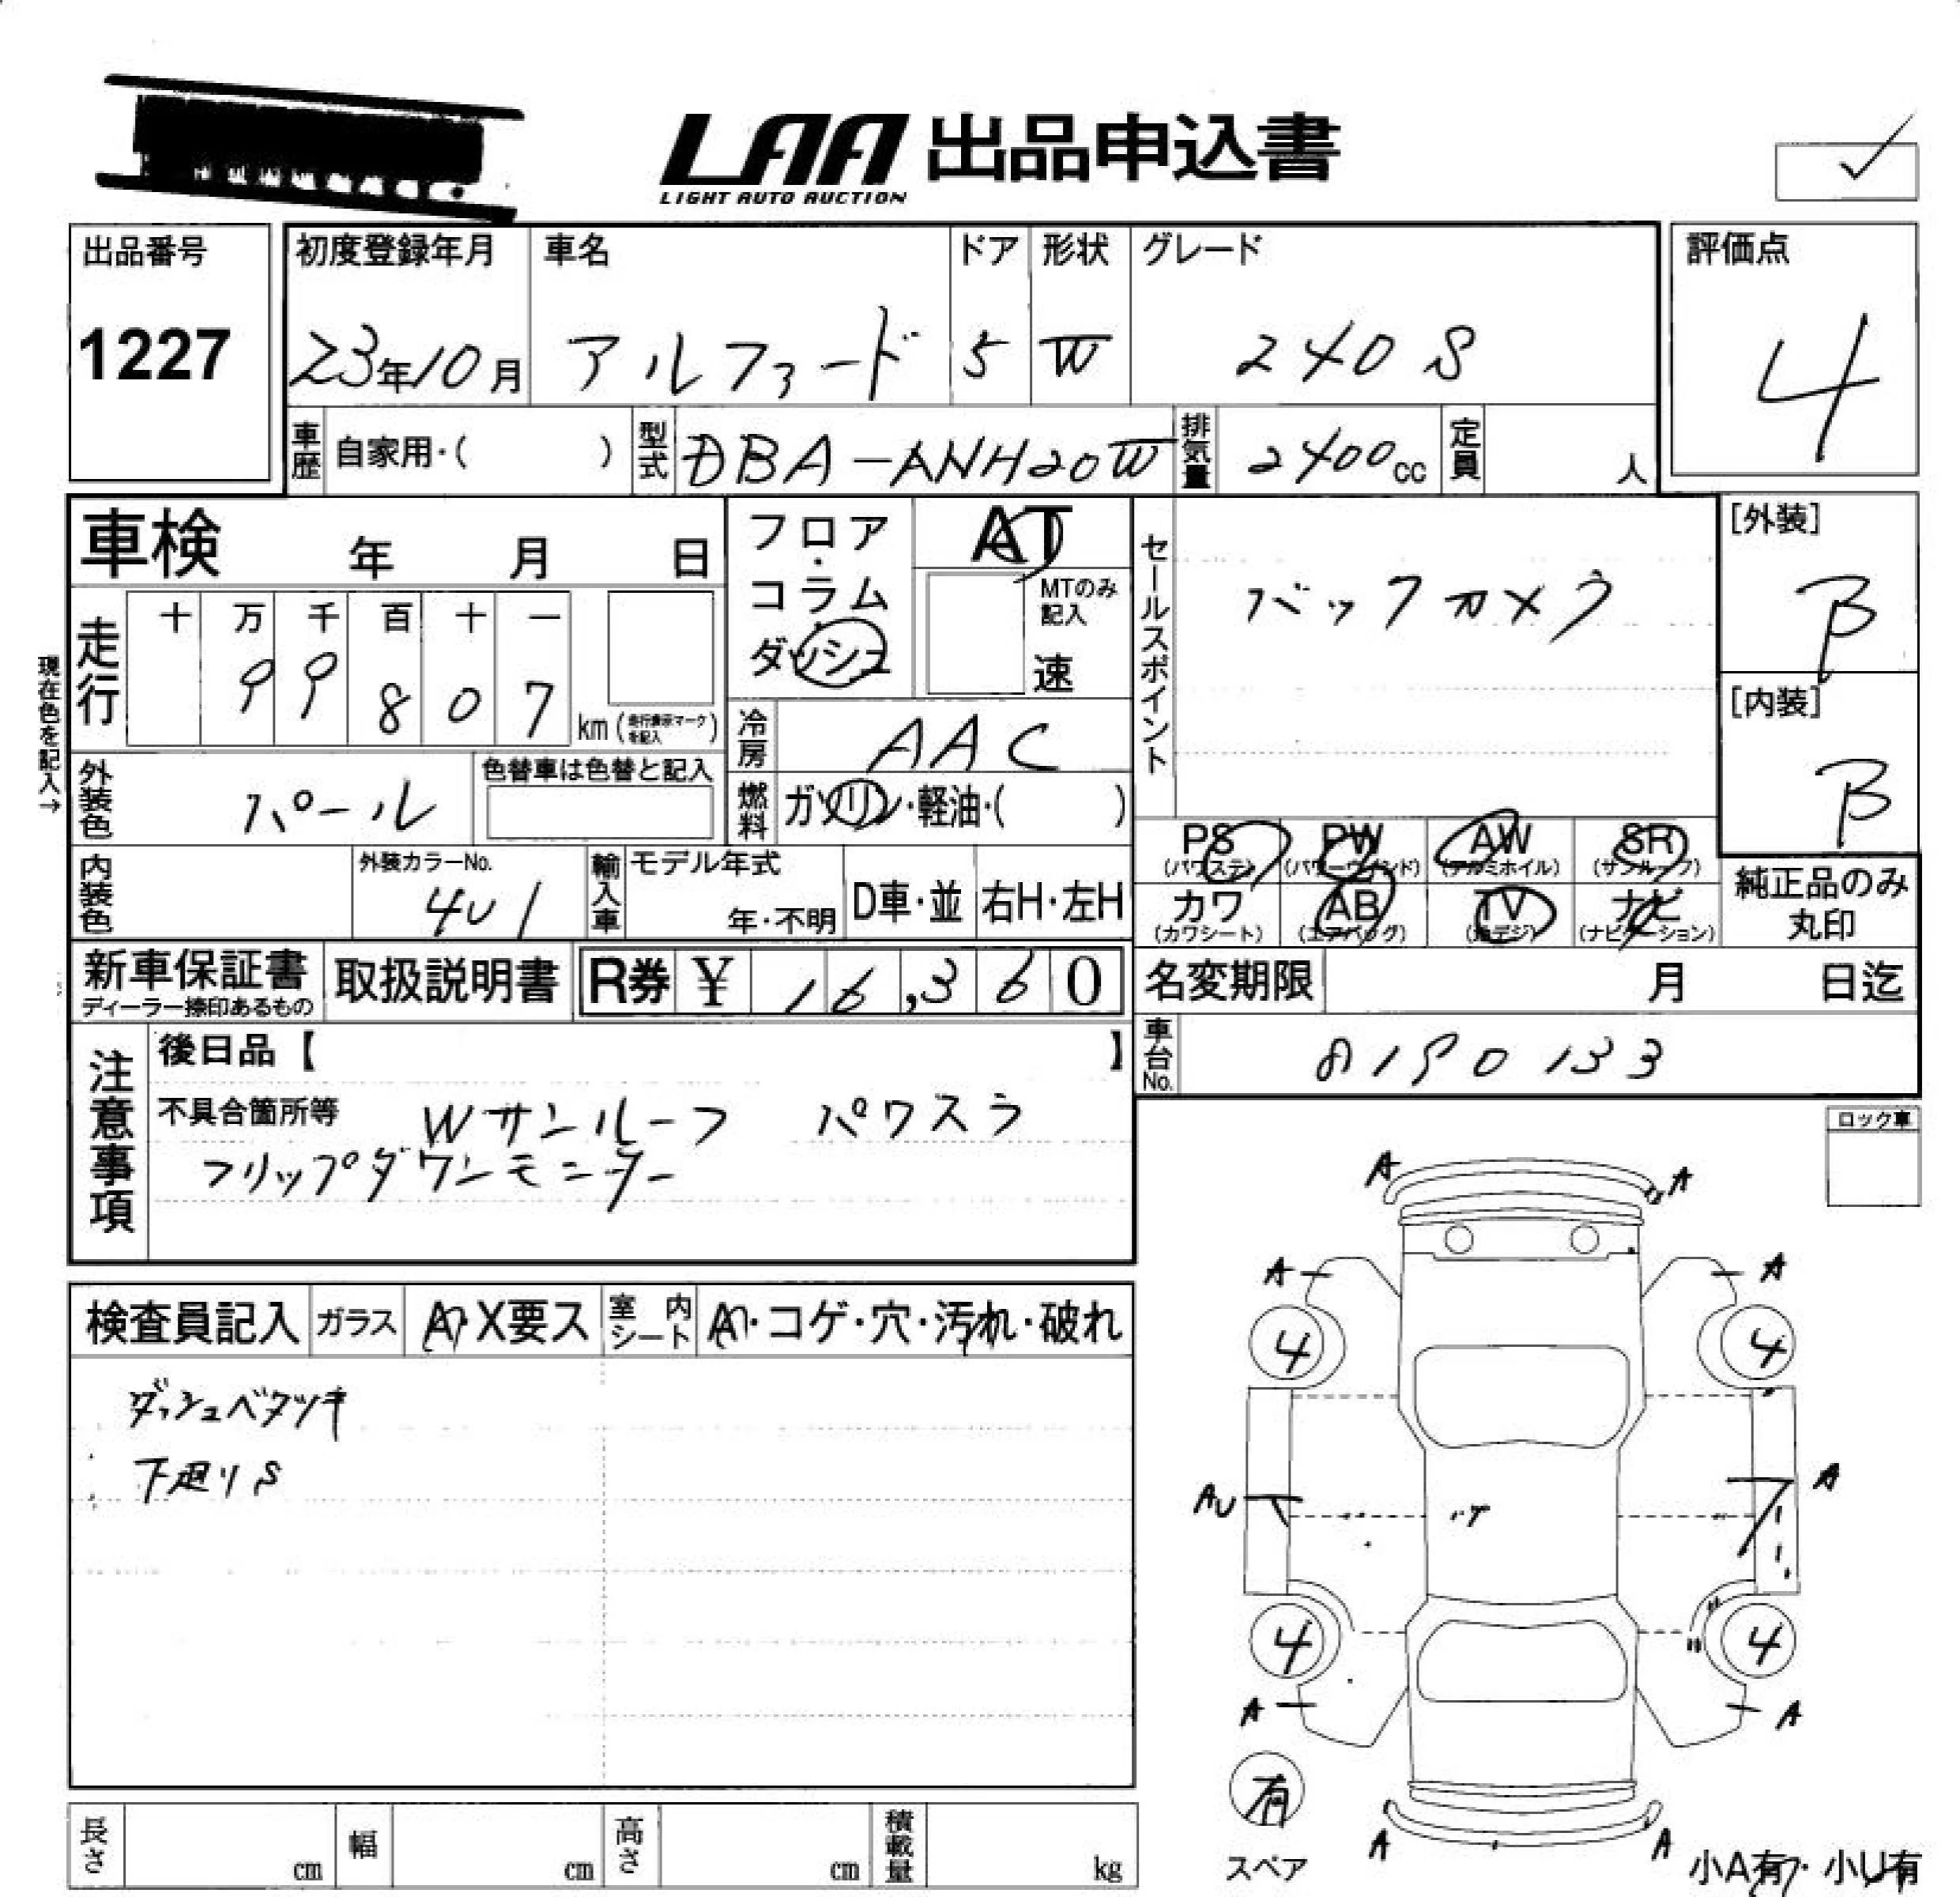 LAA 出品申込書
LIGHT AUTO AUCTION
出品番号
1227
初度登録年月 車名 ドア 形状 グレード 評価点
23年10月 アルファード 5 W 240 S 4
車歴 自家用・( ) 型式 DBA-ANH20W 排気量 2400cc 定員 人
車検 年 月 日
フロア・コラム・ダッシュ
AT
MTのみ記入
速
セールスポイント
バックカメラ
[外装]
B
[内装]
B
現在色を記入→
走行 十 万 千 百 十 一
9 9 8 0 7 km (走行表示マークを記入)
冷房 AAC
外装色 パール 色替車は色替と記入
燃料 ガソリン・軽油・( )
内装色 外装カラーNo. 4U1
輸入車 モデル年式 年・不明 D車・並 右H・左H
PS (パワステ) PW (パワーウインド) AW (アルミホイル) SR (サンルーフ)
カワ (カワシート) AB (エアバッグ) TV (地デジ) ナビ (ナビゲーション)
純正品のみ丸印
新車保証書 ディーラー捺印あるもの
取扱説明書
R券 ¥ 16,360
名変期限 月 日迄
車台No. 8190133
注意事項
後日品【 】
不具合箇所等 Wサンルーフ パワスラ
フリップダウンモニター
ロック車
検査員記入 ガラス A・X要ス 室内シート A・コゲ・穴・汚れ・破れ
ダッシュベタツキ
下廻りS
A A
A A
4 4
AU A
4 4
A A
有
スペア
A A
小A有・小U有
長さ cm 幅 cm 高さ cm 積載量 kg